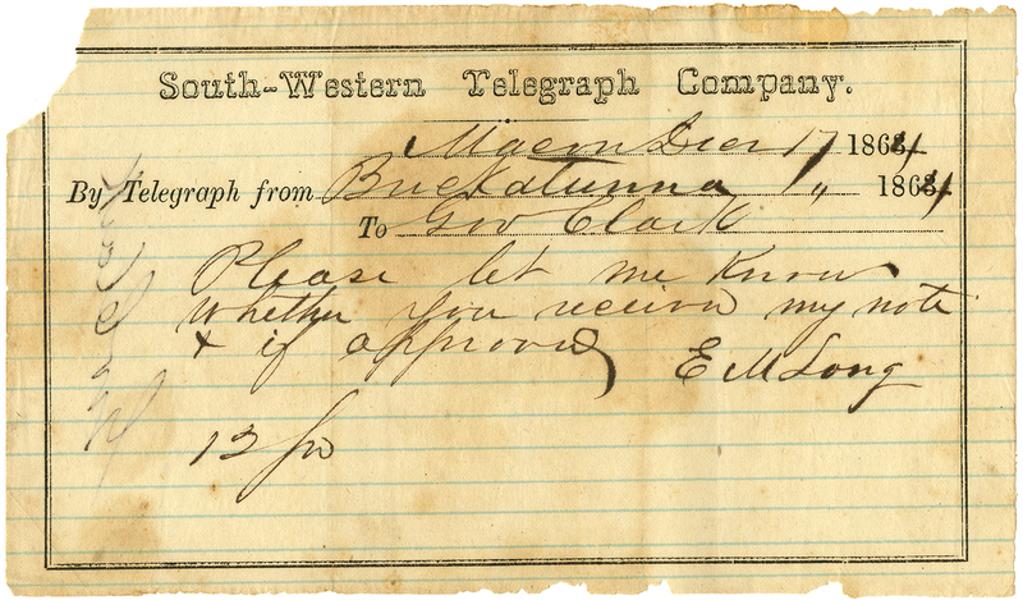 South-Western Telegraph Company.
Macon Decr 17 1864
By Telegraph from Buckatunna 1 „ 1864
To Gov Clark
Please let me Know
whether you receive my note
& if approved
E M Long
12 pd